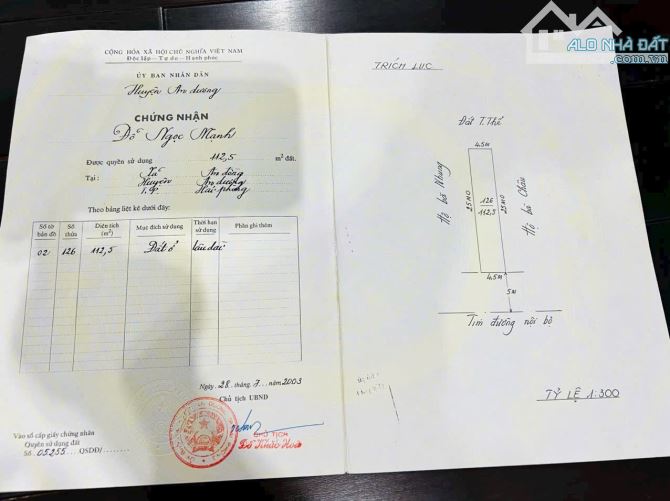 CỘNG HÒA XÃ HỘI CHỦ NGHĨA VIỆT NAM
Độc lập - Tự do - Hạnh phúc
ỦY BAN NHÂN DÂN
Huyện An dương
CHỨNG NHẬN
Đỗ Ngọc Mạnh
Được quyền sử dụng 112,5 m² đất.
Tại : Xã An đồng
Huyện An dương
T.P Hải phòng
Theo bảng liệt kê dưới đây:
Số tờ bản đồ Số thửa Diện tích (m²) Mục đích sử dụng Thời hạn sử dụng Phần ghi thêm
02 126 112,5 Đất ở lâu dài
Ngày 28 tháng 7 năm 2003
Chủ tịch UBND
CHỦ TỊCH
Vào sổ cấp giấy chứng nhận
Quyền sử dụng đất
Số 05255 QSDĐ/
ALO NHÀ ĐẤT
.com.vn
TRÍCH LỤC
Đất T.Thế
4.5M
Hộ bà Nhung
25M0
126
112,5
25M0
Hộ bà Châu
4.5M
5M
Tim đường nội bộ
TỶ LỆ 1:300